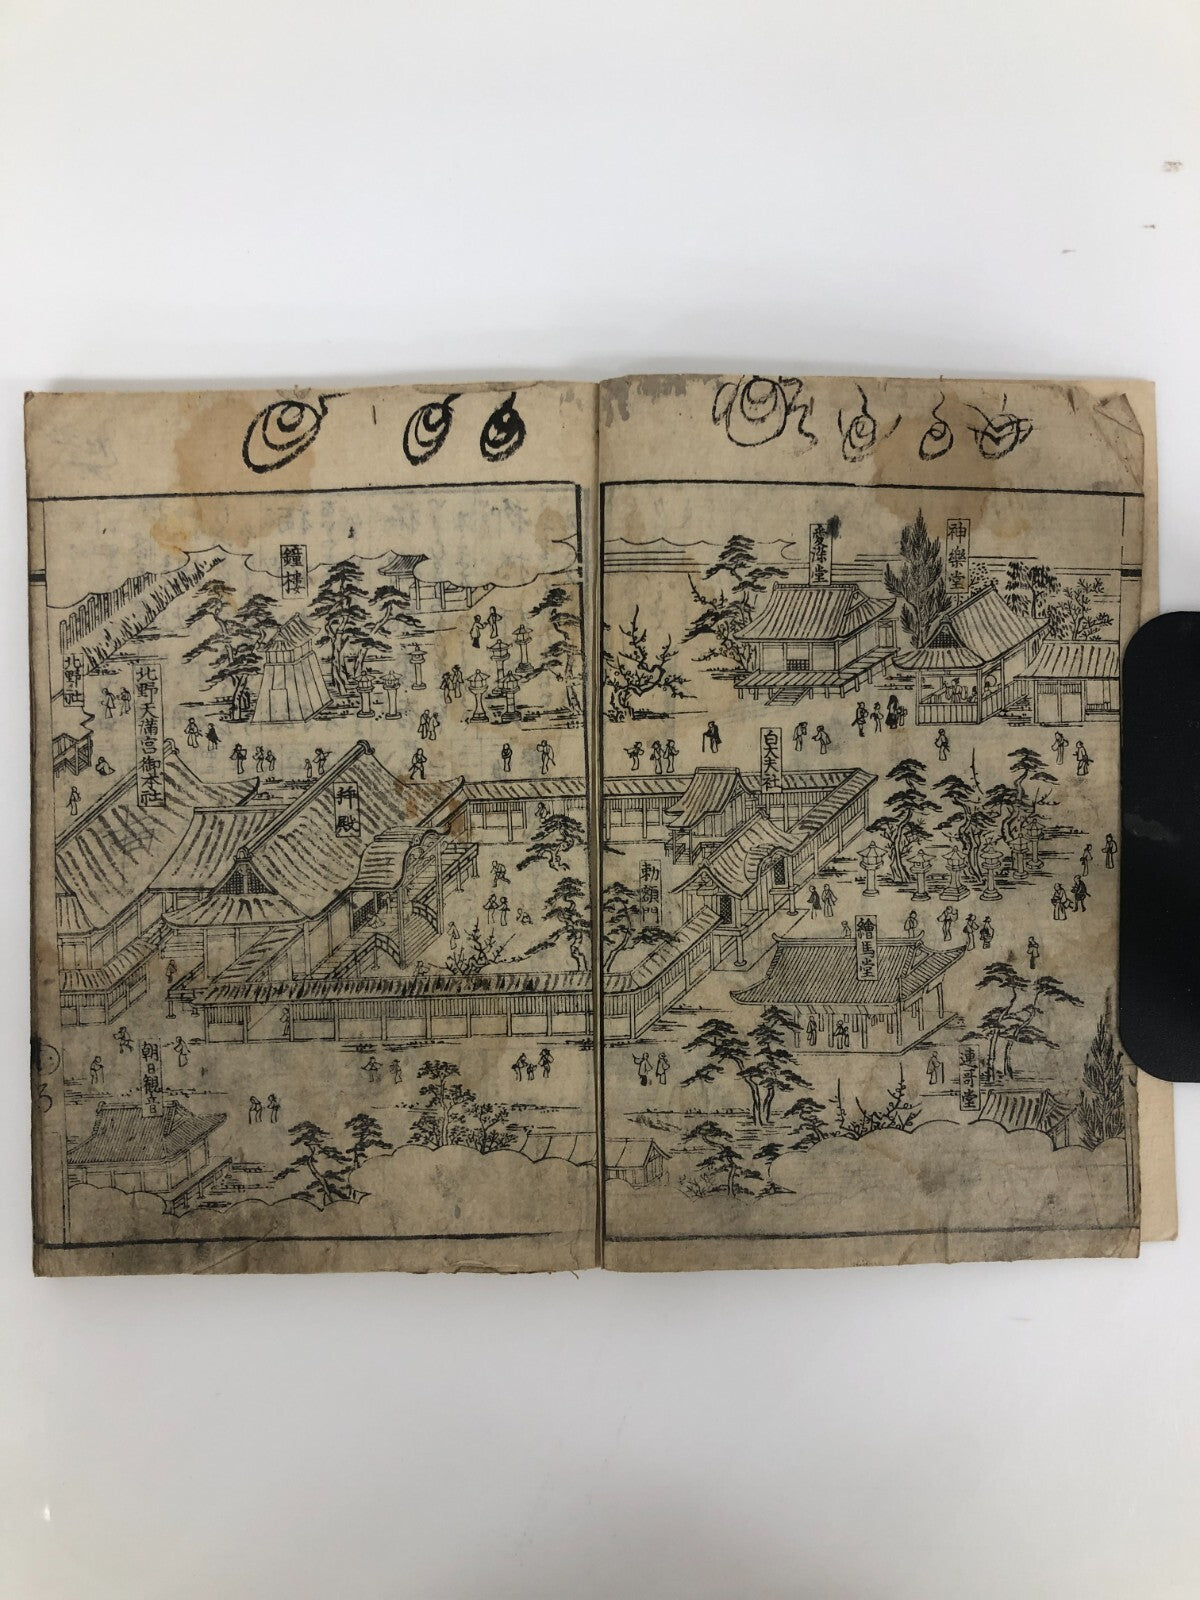 神樂堂
愛染堂
白太夫社
勅額門
繪馬堂
連哥堂
鐘樓
拝殿
北野天満宮御本社
北野社
朝日観音